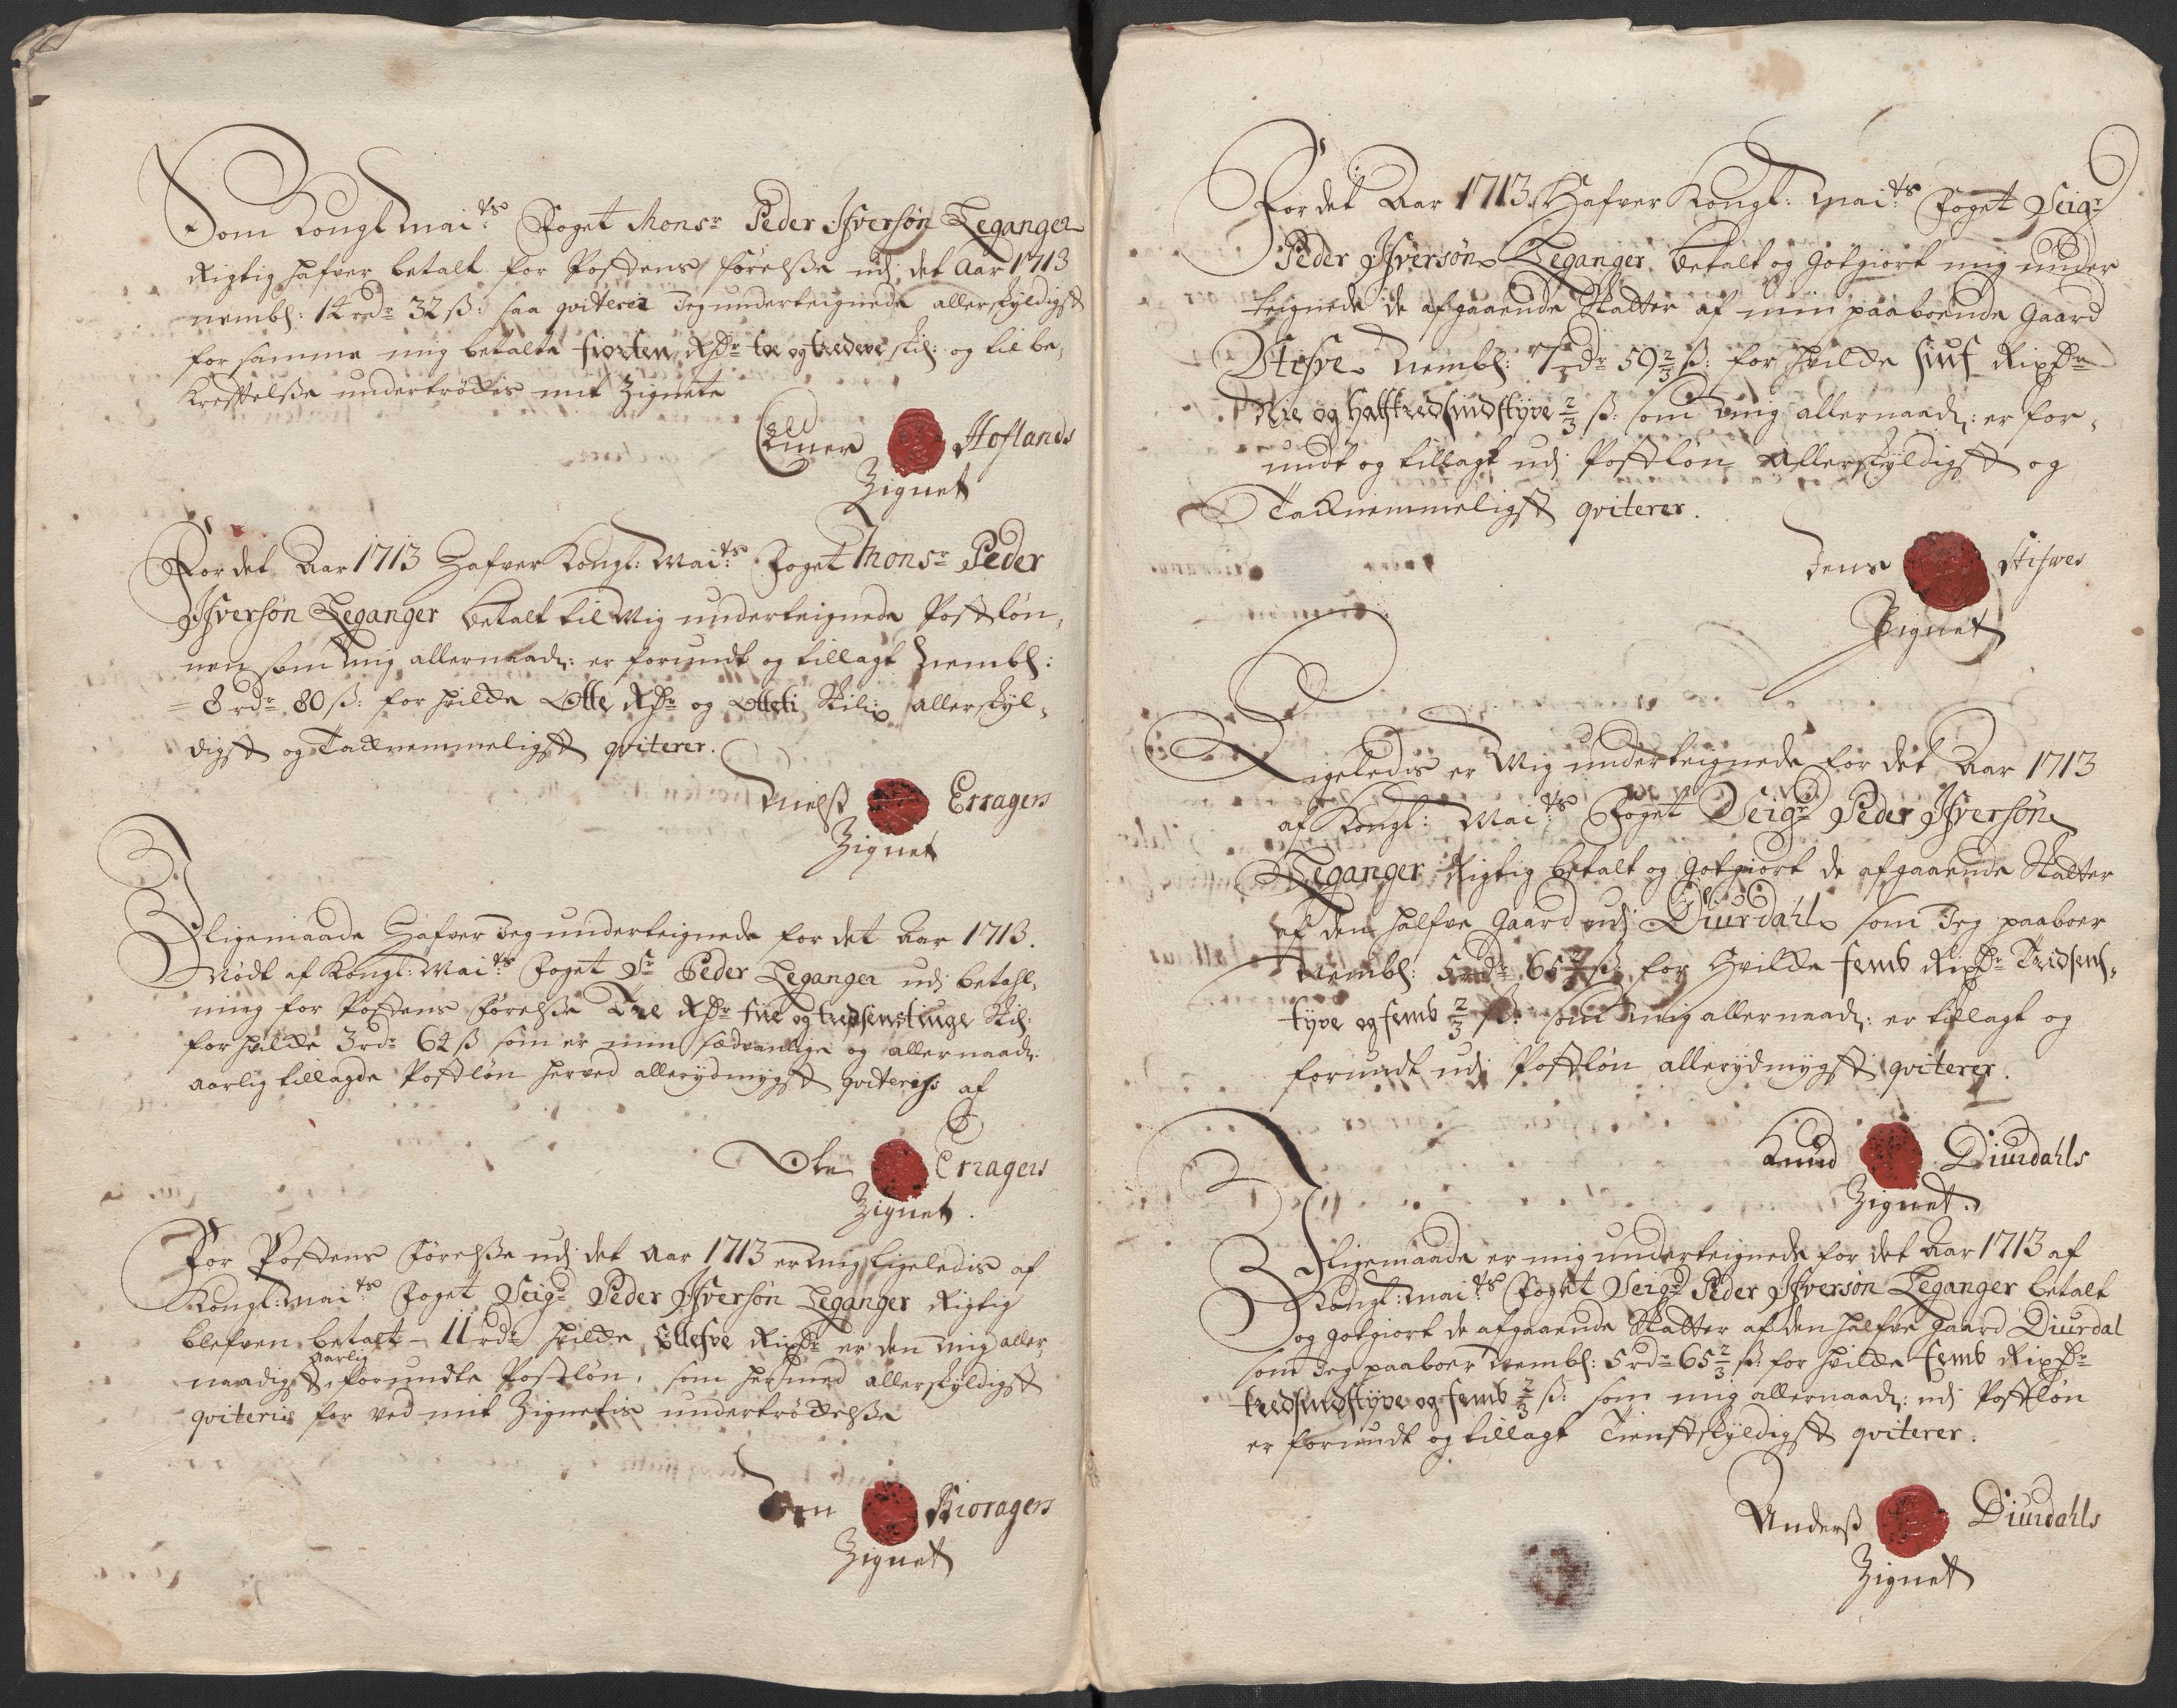 Som Kongl Mai:ts Foget Monsr Peder Ifversøn Leganger
Rigtig hafver betalt for Postens førelsse udj det Aar 1713
nembl: 14 rdr 32 ß: saa qviterer Jeg underteignede allerskyldigst
for samme mig betalte fiorten Rdr toe og tredeve skil: og til be,
kreftelsse undertrøkis mit Zignete
Einer Hoflands
Zignet
For det Aar 1713 Hafver Kongl: Mai:ts Foget Monsr Peder
Ifversøn Leganger betalt til Mig underteignede Postløn,
nen som mig allernaad: er forundt og tillagt Nembl:
= 8 rdr 80 ß: for hvilke Otte Rdr og Otteti Skil: allerskyl,
digst og Tacknemmeligst qviterer.
Nielß Erragers
Zignet
I ligemaade Hafver Jeg underteignede for det Aar 1713.
Nødt af Kongl: Mai:ts Foget Sr Peder Leganger udj betahl,
ning for Postens førelsse Tre Rdr fire og tredsenstiuge Skil:
for hvilke 3 rdr 64 ß som er min sædvanlige og allernaad:
aarlig tillagde Postløn herved allerydmygst qviteriss af
Ole Erragers
Zignet.
For Postens Førelsse udj det Aar 1713 er mig ligeledis af
Kongl: Mai:ts Foget Seigr Peder Ifversøn Leganger Rigtig
blefven betalt - 11 rdr hvilke Ellefve Rixdr er den mig aller
aarlig
naadigst forundte Postløn, som hermed allerskyldigst
qviteris for ved mit Zignetis undertrøkelsse
Kioragers
Zignet
For det Aar 1713 Hafver Kongl: Mai:ts Foget Seigr
Peder Ifversøn Leganger betalt og Gotgiort mig under
teignede de afgaaende Skatter af min paaboende Gaard
Stefve Nembl: 7 rdr 59 2/3 ß: for hvilke siuf Rixdr
Nie og halftredsindstyve 2/3 ß: som mig allernaad: er for,
undt og tillagt udj Postløn Allerskyldigst og
Tacknemmeligst qviterer.
Jens Stefves
Zignet
Ligeledis er Mig underteignede for det Aar 1713
af Kongl: Mai:ts Foget Seigr Peder Ifversøn
Leganger Rigtig betalt og Gotgiort de afgaaende Skatter
af den halfve Gaard udj Diurdahl som Jeg paaboer
Nembl: 5 rdr 65 2/3 ß for Hvilke femb Rixdr Tredsens,
tyve og femb 2/3 ß: som mig allernaad: er tillagt og
forundt udj Postløn allerydmygst qviterer.
Knud Diurdahls
Zignet.
I ligemaade er mig underteignede for det Aar 1713 af
Kongl: Mai:ts Foget Seigr Peder Ifversøn Leganger betalt
og gotgiort de afgaaende Skatter af den halfve Gaard Diurdal
som Jeg paaboer Nembl: 5 rdr 65 2/3 ß: for hvilke femb Rixdr
tredsindstyve og femb 2/3 ß: som mig allernaad: udj Postløn
er forundt og tillagt Tienstskyldigst qviterer.
Anderß Diurdahls
Zignet